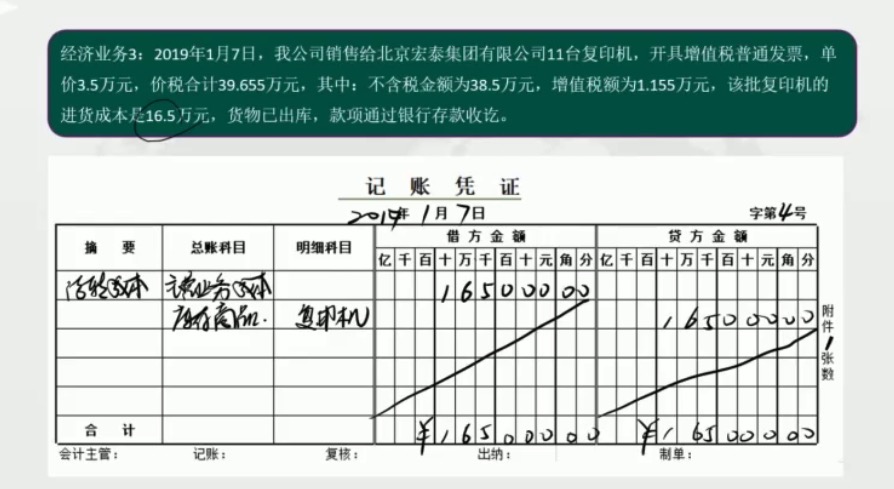 经济业务3：2019年1月7日，我公司销售给北京宏泰集团有限公司11台复印机，开具增值税普通发票，单
价3.5万元，价税合计39.655万元，其中：不含税金额为38.5万元，增值税额为1.155万元，该批复印机的
进货成本是16.5万元，货物已出库，款项通过银行存款收讫。
记账凭证
2019年1月7日 字第4号
摘要 总账科目 明细科目 借方金额 贷方金额
亿千百十万千百十元角分 亿千百十万千百十元角分
结转成本 主营业务成本 16500000
库存商品. 复印机 16500000
附件1张数
合计 ¥16500000 ¥16500000
会计主管： 记账： 复核： 出纳： 制单：